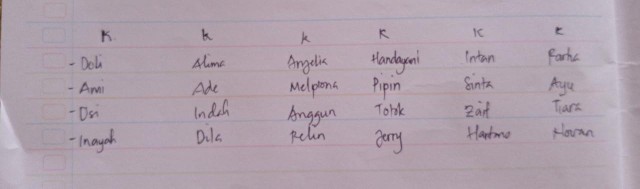 K K K K K K
- Deli Alima Angelia Handayani Intan Farha
- Ami Ade Melpiona Pipin Sinta Ayu
- Osi Indah Anggun Totok Zaif Tiara
- Inayah Dila Relin Jerry Hartono Novan